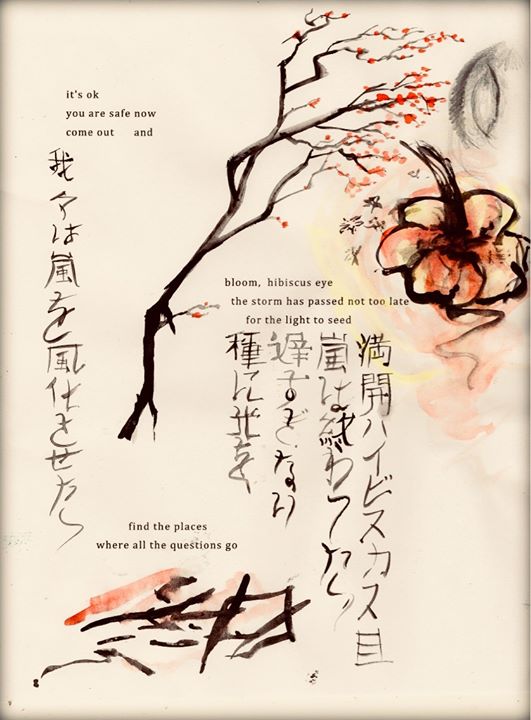 it's ok
you are safe now
come out and
我々は嵐を風化させたら
bloom, hibiscus eye
the storm has passed not too late
for the light to seed
満開ハイビスカス目
嵐は終わったら
種に光を
find the places
where all the questions go